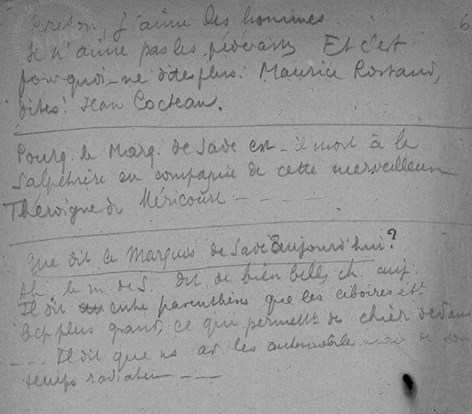 Breton, j'aime les hommes.
Je n'aime pas les pédérastes Et c'est
pourquoi ne dites plus: Maurice Rostand,
dites! Jean Cocteau.
Pourq. le Marq. de Sade est-il mort à la
Salpetrière en compagnie de cette merveilleuse
Théroigne de Méricourt - - - -
Que dit le Marquis de Sade aujourd'hui?
Ah le m. de S. dit de bien belles ch. auj.
Il dit entre parenthèses que les ciboires ét.
bcp plus grands, ce que permett. de chier dedans
- - - Il dit que ns av. les automobiles mais de son
temps radiateur - - -